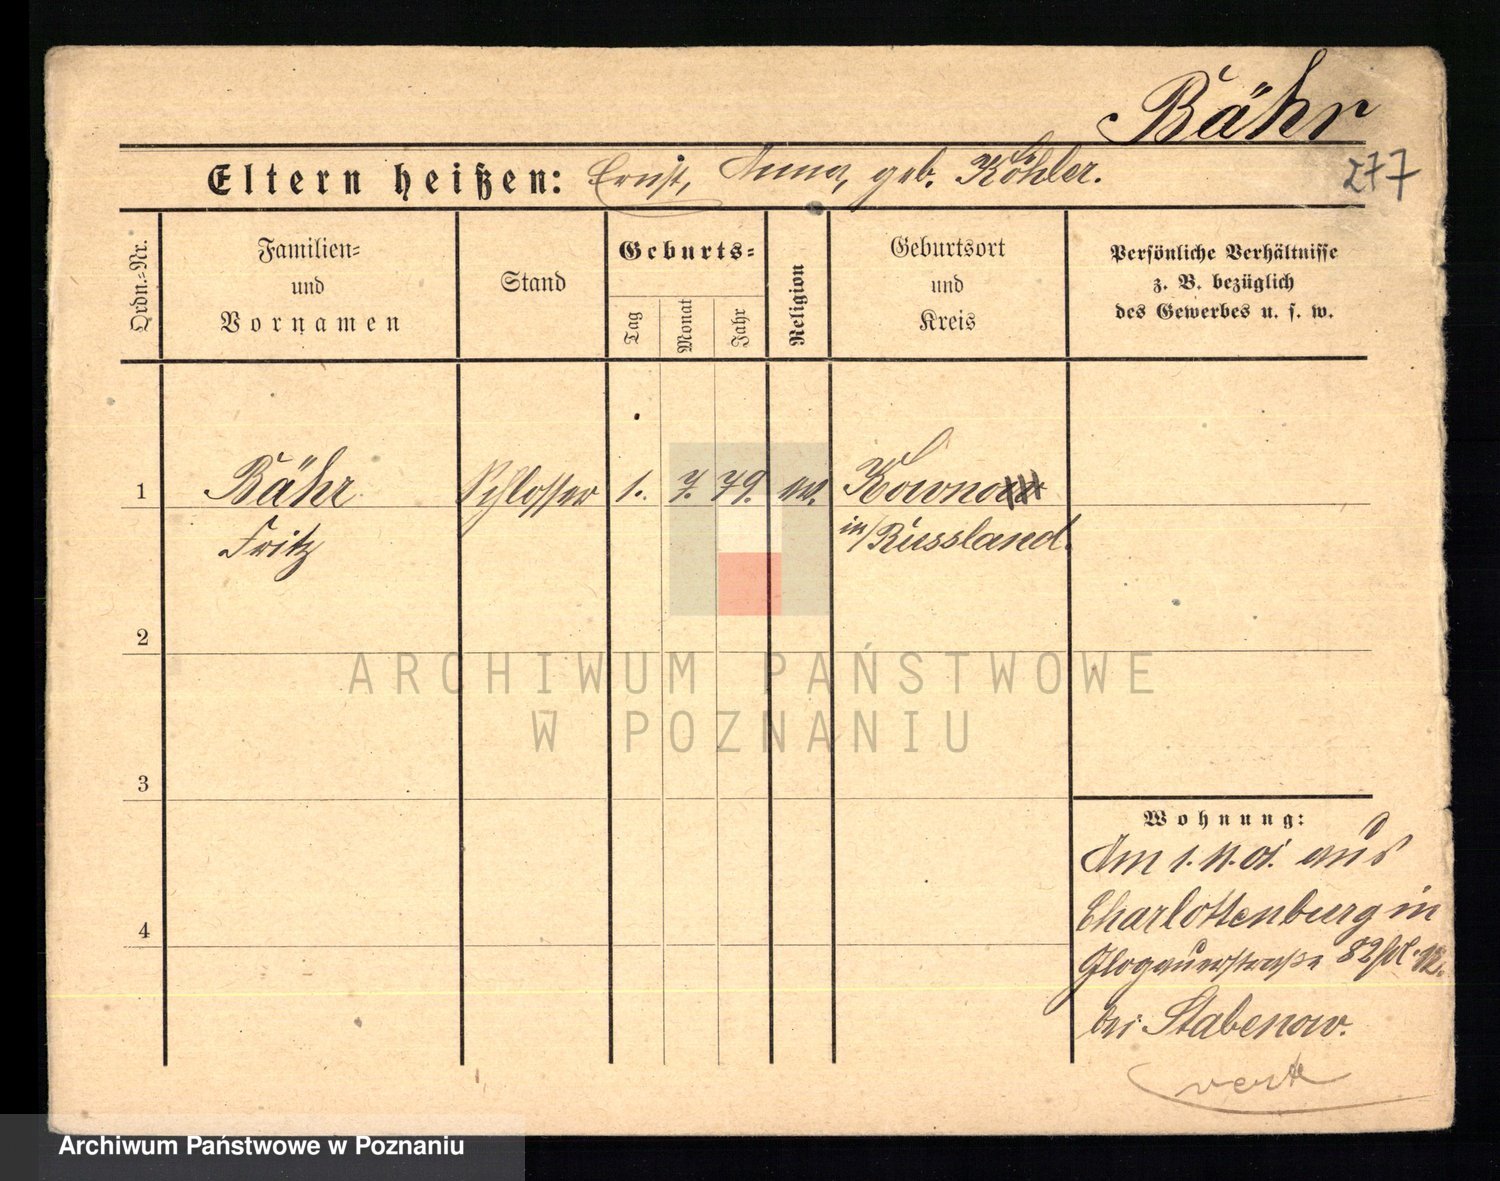 Bähr
277
Eltern heißen: Ernst, Anna, geb. Köhler.
Ordn.-Nr.
Familien-
und
Vornamen
Stand
Geburts-
Tag
Monat
Jahr
Religion
Geburtsort
und
Kreis
Persönliche Verhältnisse
z. B. bezüglich
des Gewerbes u. s. w.
1 Bähr Schlosser 1. 7. 79. ev. Kowno
Fritz in/Russland.
2
ARCHIWUM PAŃSTWOWE
W POZNANIU
3
Wohnung:
Am 1.11.01. aus
4
Charlottenburg in
Glogauerstraße 82
bei Stabenow.
Archiwum Państwowe w Poznaniu